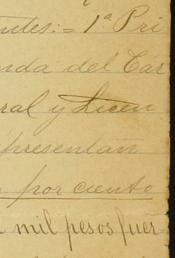 ntes: = 1ª Pri
nda del Car
ral y Licen
presentan
por ciento
mil pesos fuer